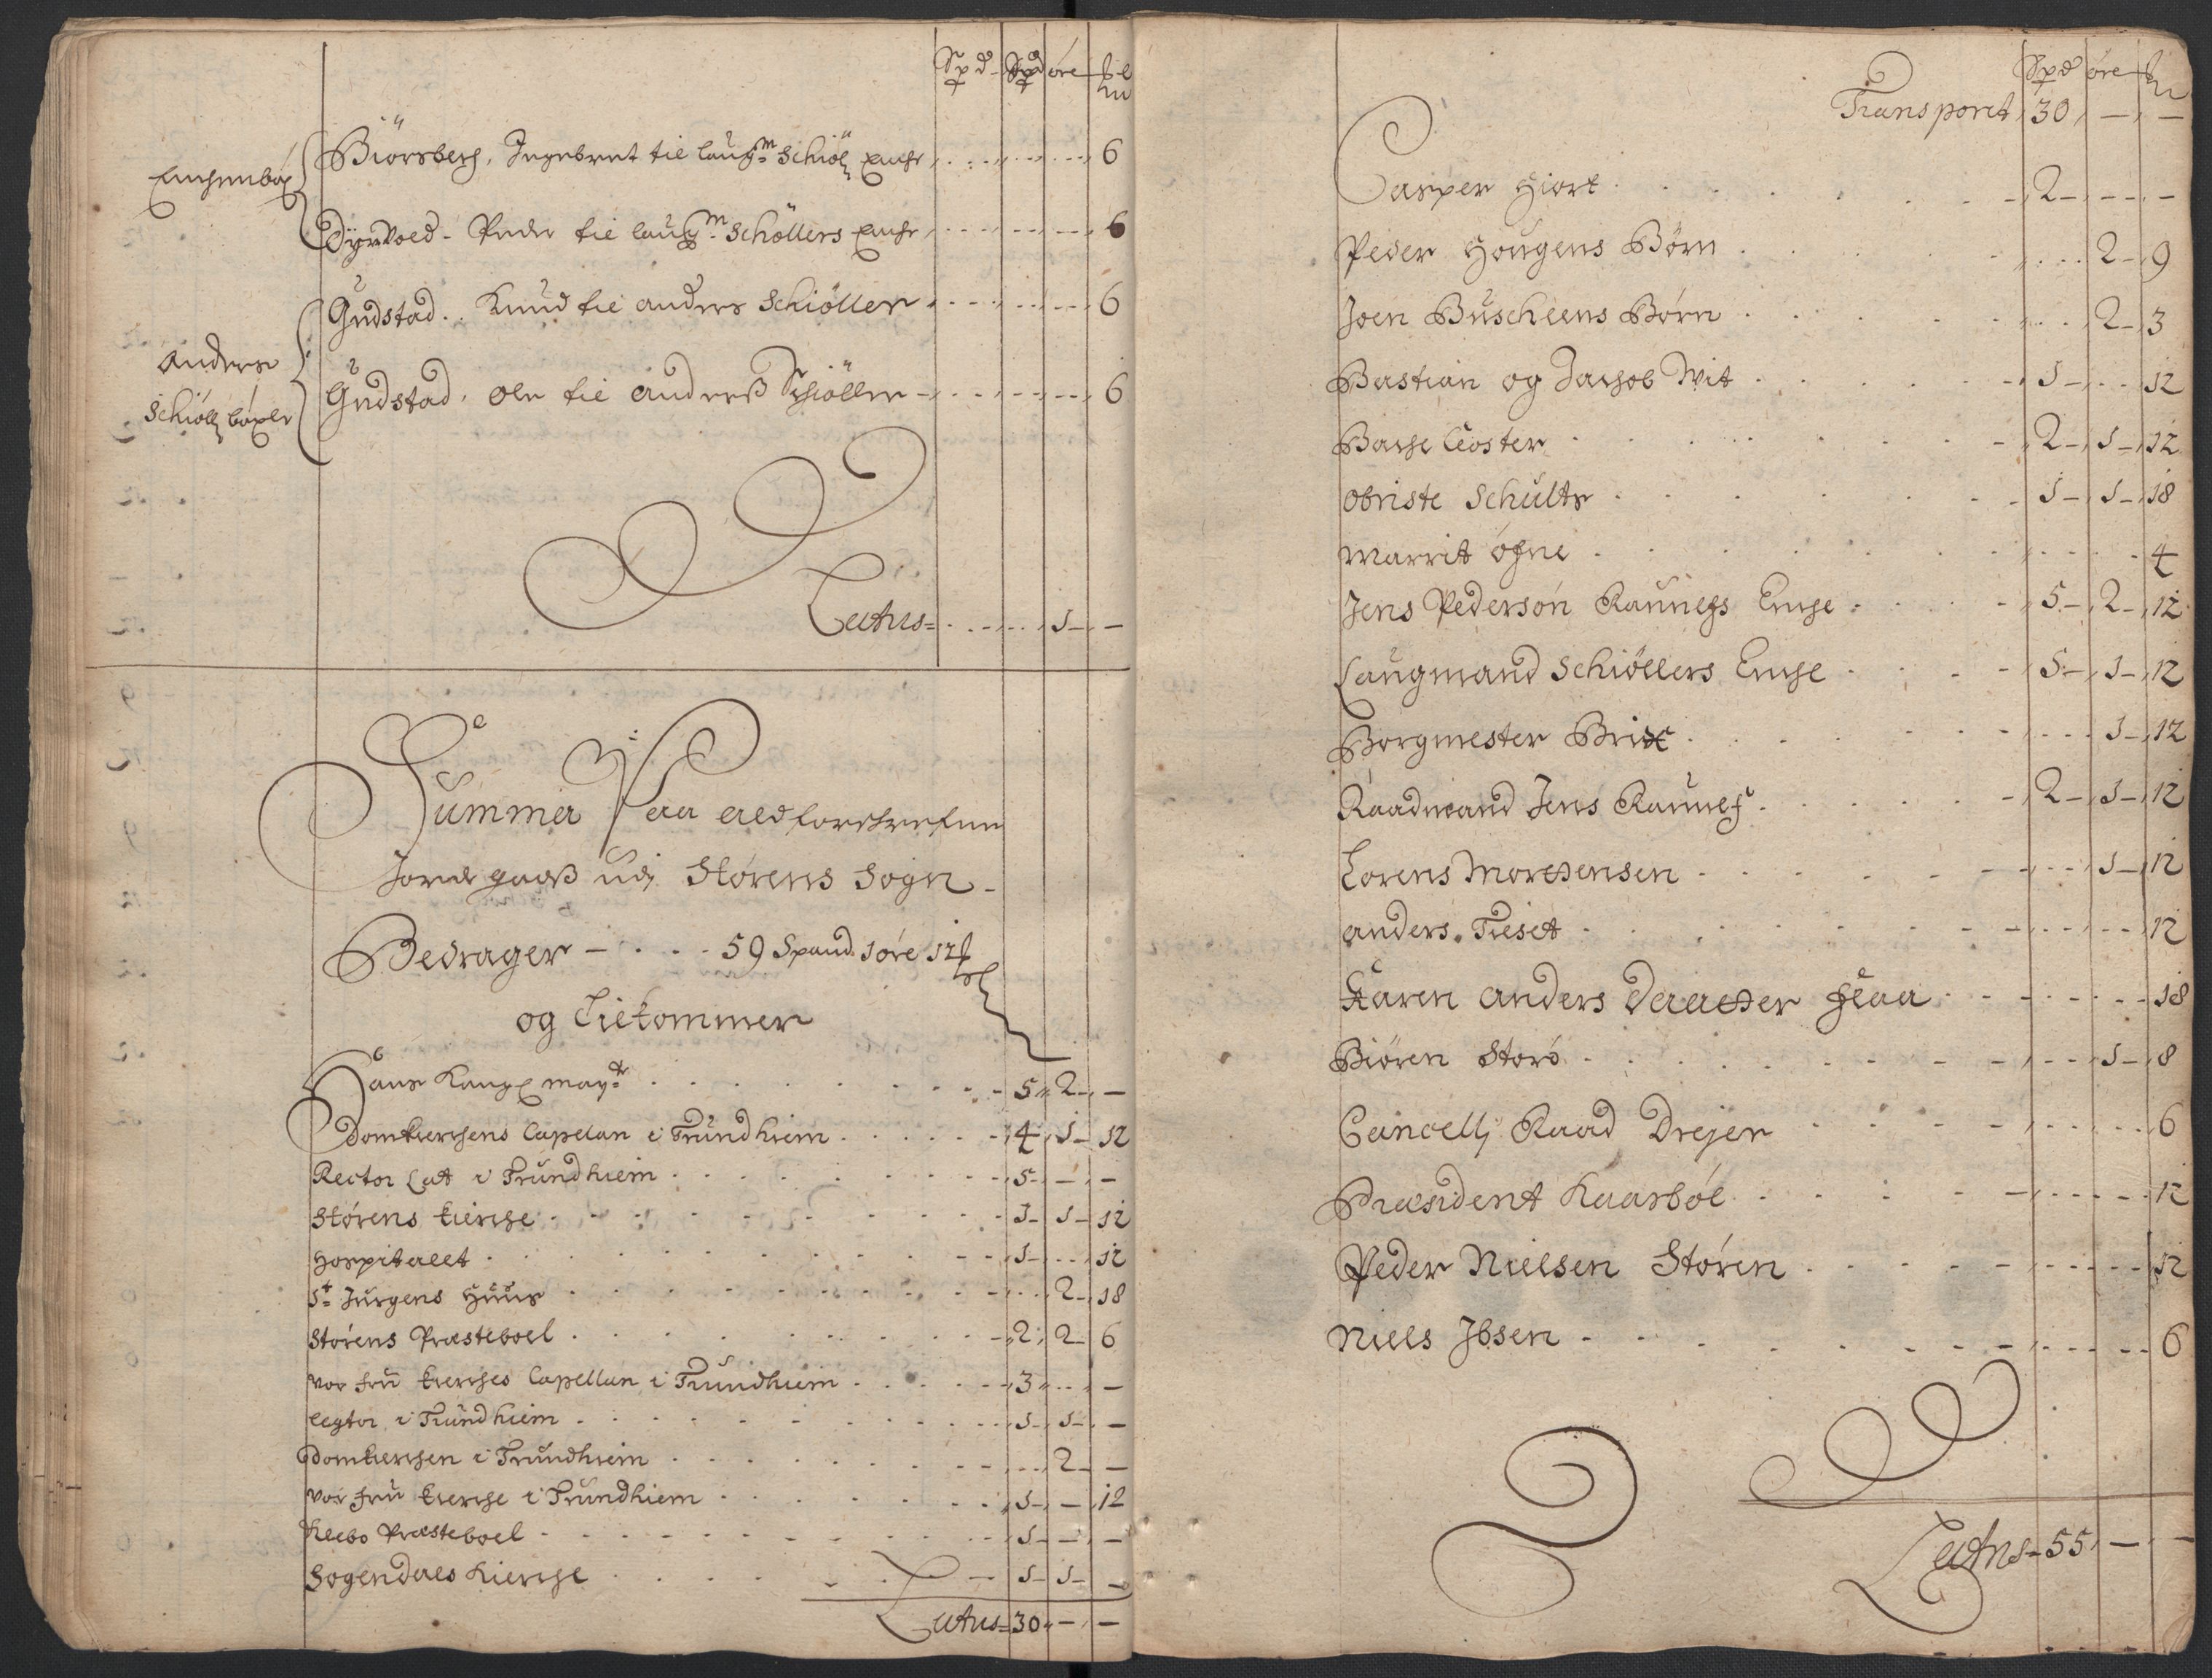 Spd Spd øre
Biörsberg, Ingebret til laugm. Schiöll Enche 6
Enchens böx
Dyrvold - Peder til laugm. Schöllers Enche 6
Gudstad .. Knud til anders Schiöller 6
Anders
Schiöll böxler
Gudstad, Ole til anderß Schiöller 6
Latus 1 - -
Summa Paa alt forskrefne
Jorde gods udj Störens Sogn -
Bedrager - 59 Spand 1 øre 12
og Tilkommer
Hans Kongl mayt 5 2 -
Domkierchens Capelan i Trundhiem 4 1 12
Rector Lat i Trundhiem 5 - -
Störens kierche 3 1 12
Hospitallet 1 12
St Jürgens Huus 2 18
Störens Præsteboel 2 2 6
Vor frü kierches Capellan i Trundhiem 3 -
Legtor i Trundhiem 1 1 -
Domkierchen i Trundhiem 2 -
Vor frü kierche i Trundhiem 1 - 12
Klebo Præsteboel 1 - -
Sogendals kierche 1 1 -
Latus 30 - -
Spd øre
Transport 30 - -
Casper Hiort 2 - -
Peder Hougens Börn 2 9
Joen Buschens Börn 2 3
Bastian og Jachob Wit 1 12
Basse Closter 2 1 12
Obriste Schults 1 1 18
Marrit öfne 4
Jens Pedersön Raunes Enche 5 2 12
Laugmand Schiöllers Enche 5 1 12
Borgmester Brix 1 12
Raadmand Jens Raunes 2 1 12
Lorens Mortensen 1 12
anders Tieset 12
Karen anders Daatter flaa 18
Biören Storö 1 8
Cancelli Raad Drejer 6
Præsident Kaasböl 12
Peder Nielsen Stören 12
Niels Ibsen 6
Latus 55 - -